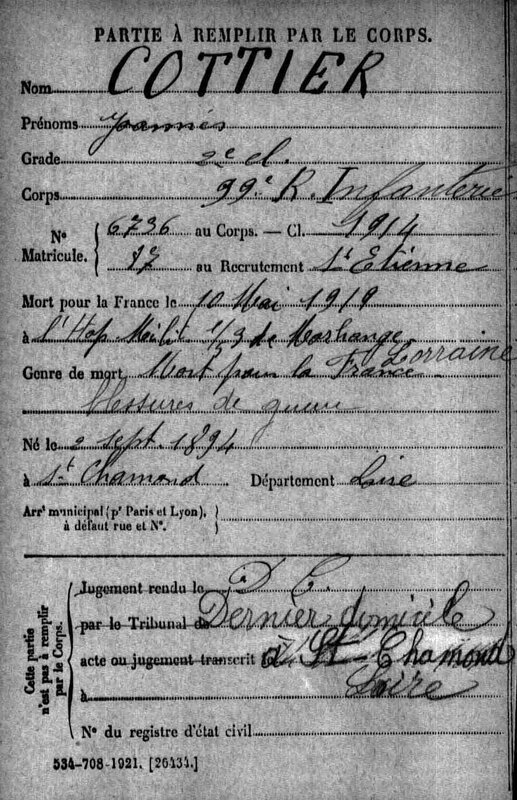 PARTIE À REMPLIR PAR LE CORPS.
Nom COTTIER
Prénoms Joannès
Grade 2e cl.
Corps 99e R. Infanterie
N° Matricule. 6736 au Corps. — Cl. 1914
17 au Recrutement St Etienne
Mort pour la France le 10 Mai 1919
à l'Hop Milit de Morhange Lorraine
Genre de mort Mort pour la France
blessures de guerre
Né le 2 Sept. 1894
à St Chamond Département Loire
Arrt municipal (pr Paris et Lyon), à défaut rue et N°.
Cette partie n'est pas à remplir par le Corps.
Jugement rendu le D. C.
par le Tribunal de Dernier domicile
acte ou jugement transcrit le à St Chamond
à Loire
N° du registre d'état civil
534-708-1921. [26434.]